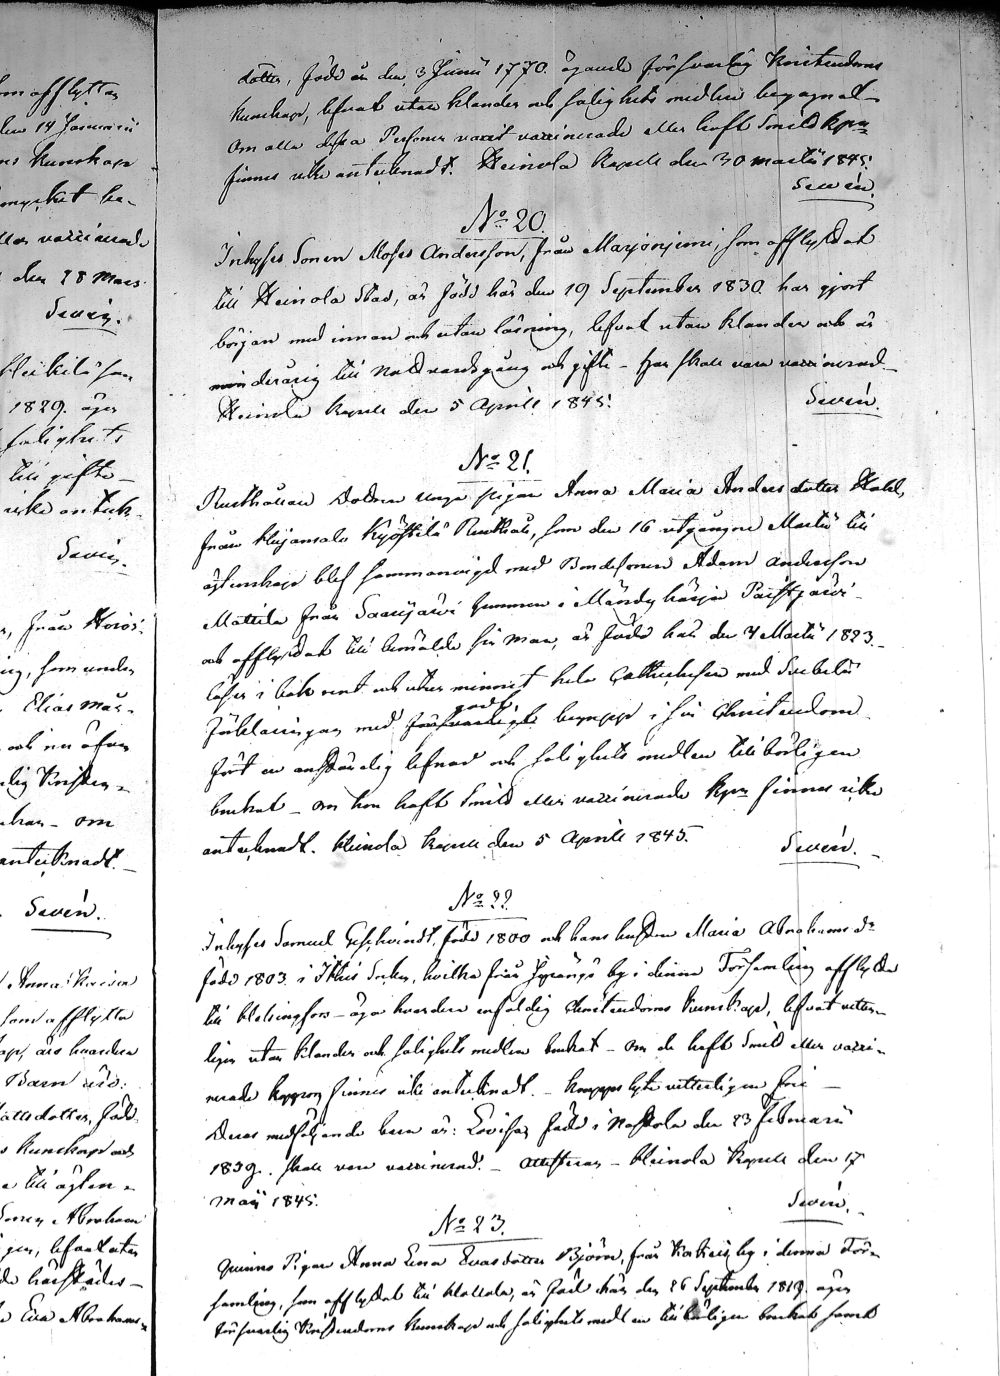 om afflyttar
den 14 Januarii
ns kunskap
mycket be-
ller vaccinerade
den 28 Mars
Sevén.
Heikkilä
1829. äger
salighets
till gifte
icke anteck-
Sevén.
från
som under
Elias
och nu äfven
om
antecknadt.
Sevén.
Anna Kaisa
som afflytta
äro hvardera
Barn äro:
Mattsdotter, född
kunskap och
till ägten-
Abraham
lefvat utan
Eva Abrahams-
dotter, född är den 3 Junii 1770. ägande försvarlig Kristendoms
kunskap, lefvat utan klander och salighets medlen begagnat
Om alla dessa Personer varit vaccinerade eller haft Smittkpr
finnes icke antecknadt. Heinola Kapell den 30 Martii 1845.
Sevén.
No 20.
Inhyses Sonen Moses Andersson, från Marjonjemi, som afflyttat
till Heinola Stad, är född här den 19 September 1830. har gjort
början med innan och utan läsning, lefvat utan klander och är
minderårig till Nattvardsgång och gifte - har skall vara vaccinerad -
Heinola Kapell den 5 Aprill 1845.
Sevén.
No 21.
Rusthållare Dottren unga pigan Anna Maria Anders dotter
från Hujansalo Kyöstilä Rusthåll, som den 16 utgångne Martii till
äktenskap blef sammanvigd med Bondesonen Adam Andersson
Mattila från Saarijärvi hemman i Mäntyharju
och afflyttat till bemälde sin man, är född här den 4 Martii 1823.
läser i bok rent och utur minnet hela Cathechesen med Svebelii
förklaringar med godt försvarligt begrepp i sin Christendom
fört en anständig lefnad och salighets medlen tillbörligen
brukat - om hon haft Smitt eller vaccinerade kpr finnes icke
antecknadt. Heinola Kapell den 5 Aprill 1845.
Sevén.
No 22.
Inhyses Samuel Geschwindt, född 1800 och hans hustru Maria Abrahams dr
född 1803. i Ithis Socken, hvilka från by i denna Församling afflytta
till Helsingfors - äga hvardera enfaldig Christendoms kunskap, lefvat vetter-
ligen utan klander och salighets medlen brukat - om de haft Smitt eller vacci-
nerade koppor finnes icke antecknadt. - vetterligen fria -
Deras medföljande barn är: Lovisa, född i Nastola den 23 Februarii
1839. skall vara vaccinerad. - attesteras - Heinola Kapell den 17
Maji 1845.
Sevén.
No 23.
Qvinns Pigan Anna Lena Evasdotter Björn, från by i denna För-
samling, som afflyttat till Hollola, är född här den 26 September 1819. äger
försvarlig Kristendoms kunskap och salighets medlen tillbörligen brukat samt